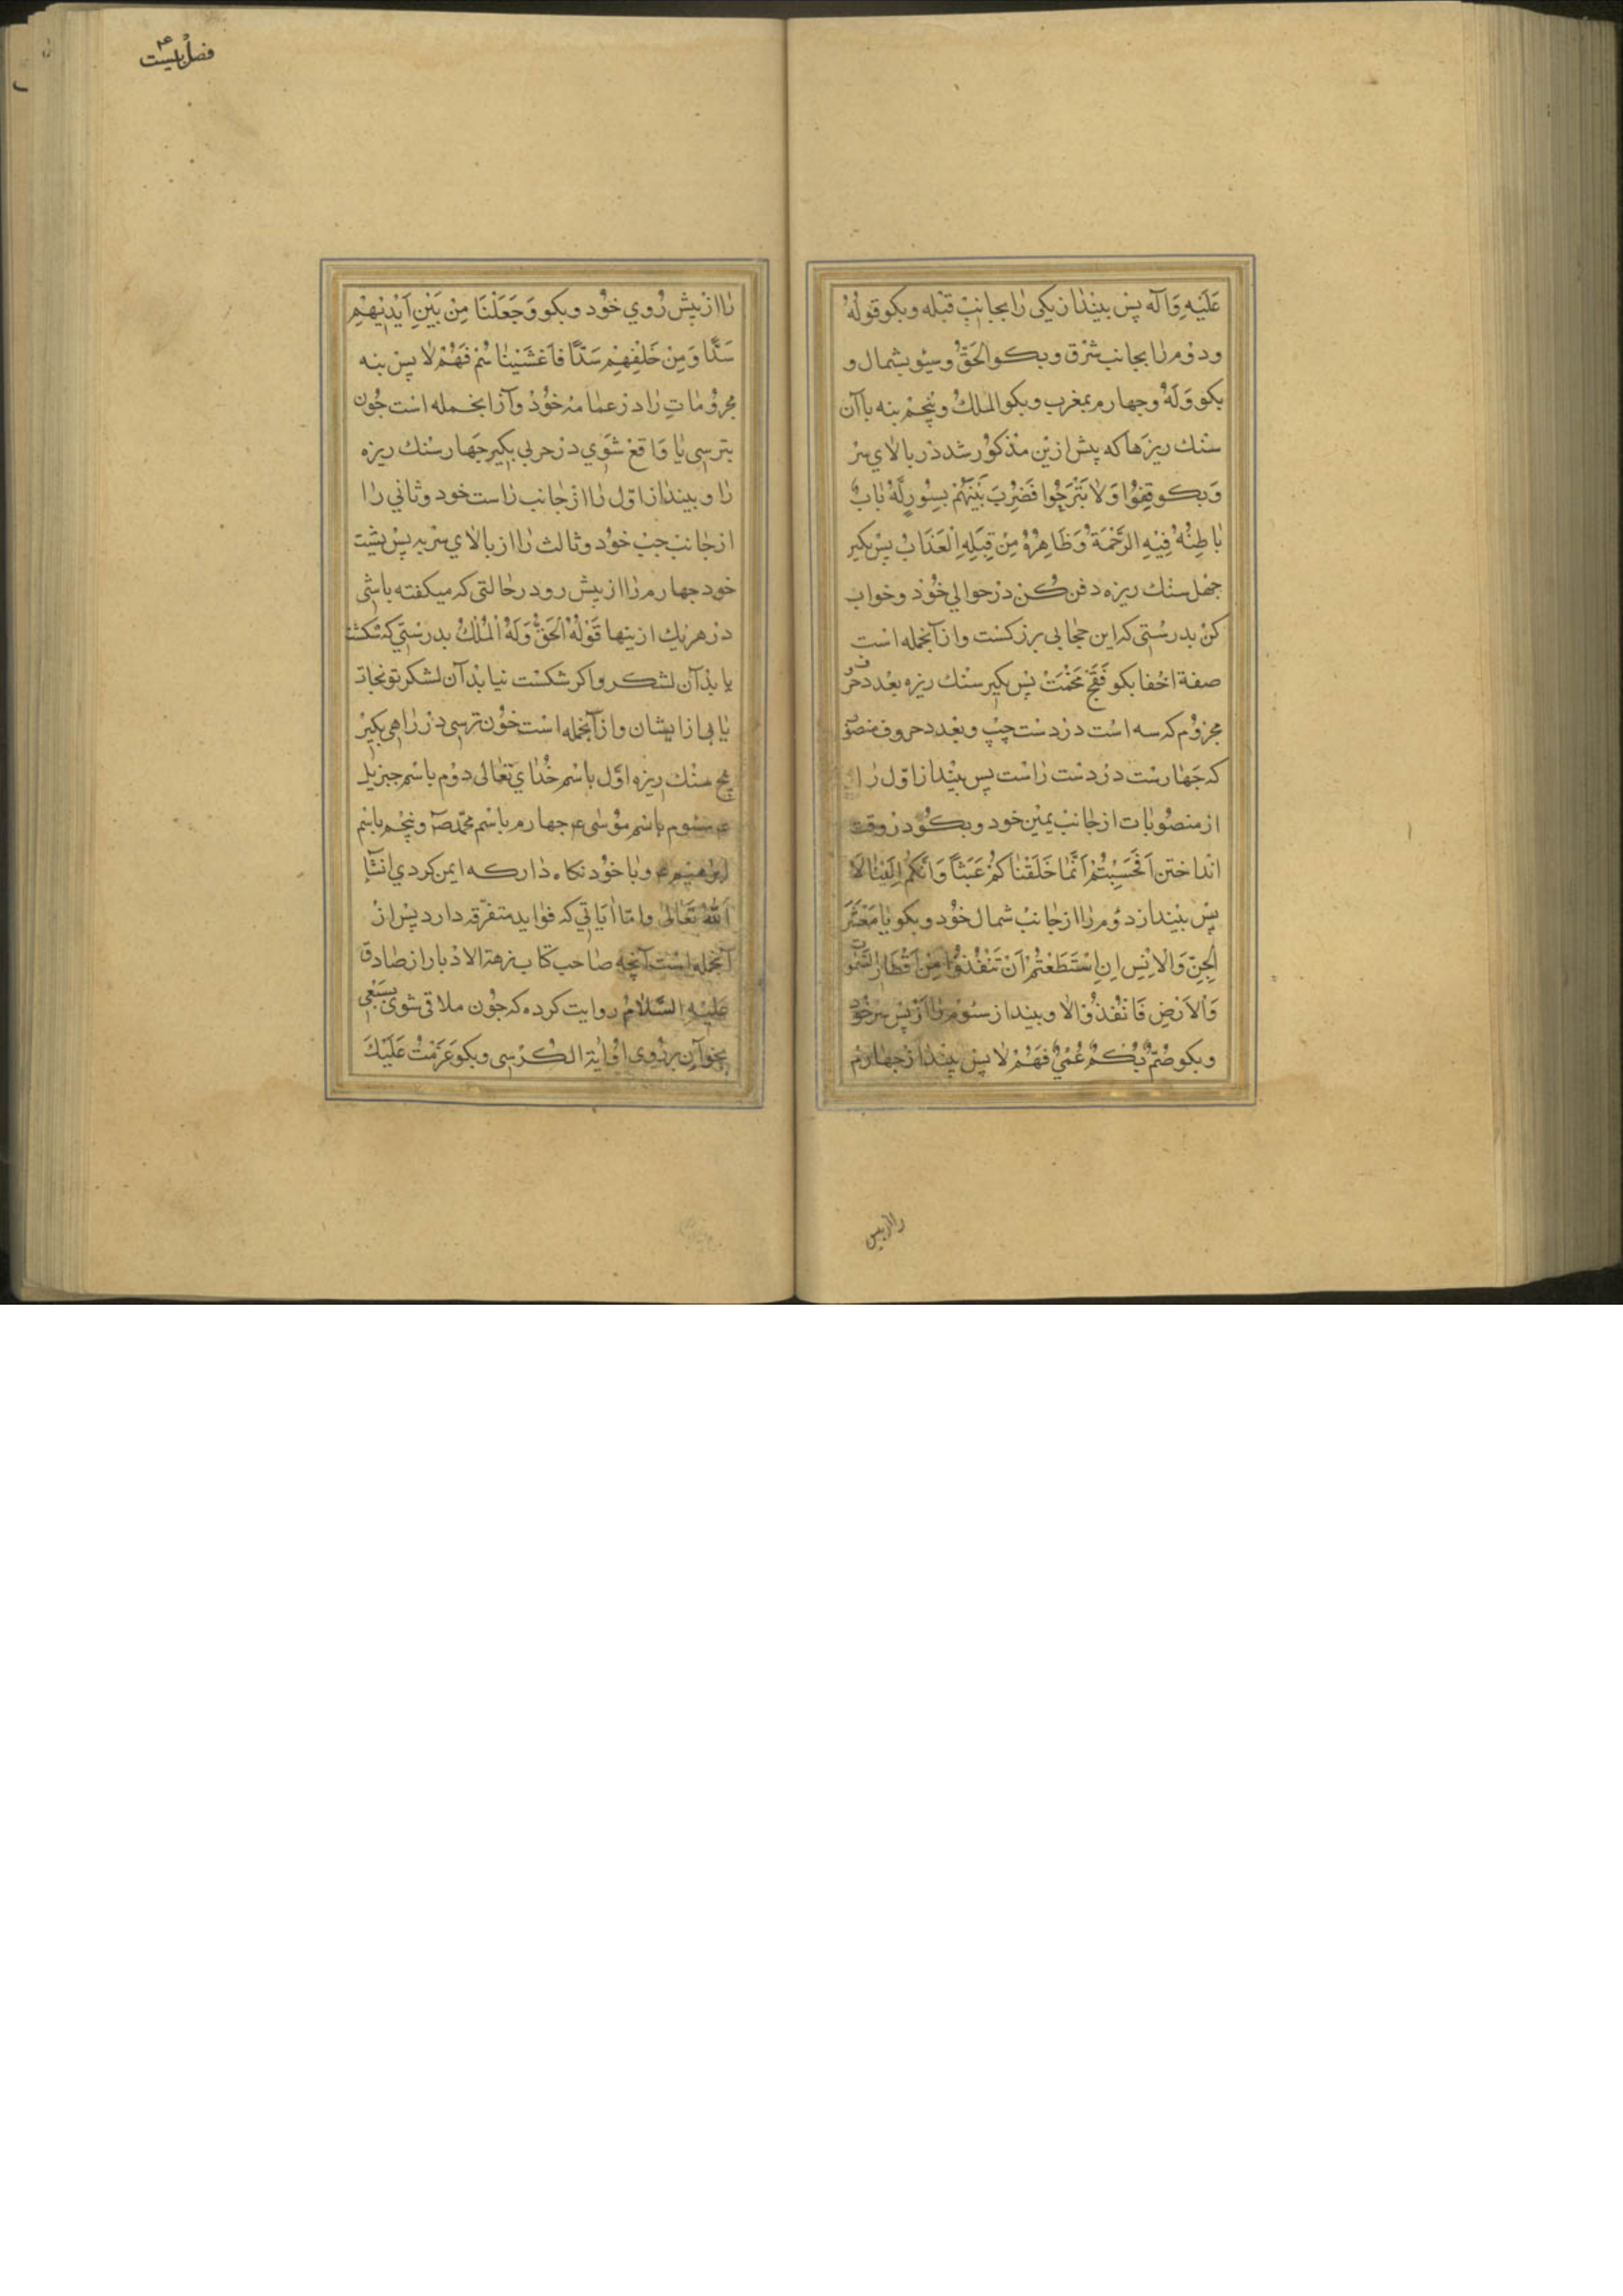 عَلَيْهِ وَآلَه پس بيندازيكى را بجانب قبله و بكو قولُهُ
و دوم را بجانب شرق و بكو الحَقُّ وسيو بشمال و
بكو وَلَهُ و جهارم بمغرب و بكو الملكُ و پنجم بنه باآن
سنك ريزها كه پيش ازين مذكور شد در بالاي سر
وَبكو قِفُوا وَلا تَبْرَحُوا فَضُرِبَ بَيْنَهُمْ بِسُورٍ لَهُ بٰابٌ
بٰاطِنُهُ فِيْهِ الرَّحْمَةُ وَظَاهِرُهُ مِنْ قِبَلِهِ الْعَذَابُ پس بكير
جهل سنك ريزه دفن كُن در حوالي خود و خواب
كن بدرستى كه اين حجابى بزركست و از آنجمله است
صفة اخفا بكو فَقَجْ مَخْمَتْ پس بكير سنك ريزه بعدد حروف
مجزوم كه سه است در دست چپ و بعدد حروف منصو
كه جهارست در دست راست پس بينداز اول را
از منصوبات از جانب يمين خود و بكو در وقت
انداختن اَفَحَسِبْتُمْ اَنَّمٰا خَلَقْنٰاكُمْ عَبَثاً وَاَنَّكُمْ اِلَيْنٰا لَا
پس بينداز دوم را از جانب شمال خود و بكو يٰا مَعْشَرَ
الْجِنِّ وَالْاِنْسِ اِنِ اسْتَطَعْتُمْ اَنْ تَنْفُذُوا مِنْ اَقْطَارِ السَّمٰو
وَالْاَرْضِ فَانْفُذُوْا لا و بينداز سوم را از پس سر خود
و بكو صُمٌّ بُكْمٌ عُمْيٌ فَهُمْ لا پس بينداز جهارم
را از پيس
فصل بيست
را از پيش رُوي خود و بكو وَجَعَلْنَا مِنْ بَيْنِ اَيْدِيْهِمْ
سَدًّا وَمِنْ خَلْفِهِمْ سَدًّا فَاَغْشَيْنٰاهُمْ فَهُمْ لا پس بنه
مجزومٰاتِ را در عمامه خود و از آنجمله است جون
بترسى يا واقع شوي در حربى بكير جهار سنك ريزه
را و بينداز اول را از جانب راست خود و ثاني را
از جانب جب خود و ثالث را از بالاي سر بر پس پشت
خود جهارم را از پيش رو در حالتى كه ميكفته باشى
در هر يك از ينها قَوْلُهُ الْحَقُّ وَلَهُ الْمُلْكُ بدرستى كه شكست
يابد آن لشكر و اكر شكست نيابد آن لشكر تو نجات
يابى از ايشان و از آنجمله است جون ترسى در راهى بكير
پنج سنك ريزه اول باسم خُداي تعالى دوم باسم جبرئيل
ع سوم باسم موسى ع جهارم باسم محمد ص و پنجم باسم
ابراهيم ع و با خود نكاه دار كه ايمن كردي انشآ
اَللّٰهُ تَعَالىٰ و امّا اٰيَاتي كه فوايد متفرقه دارد پس از
آنجمله است آنچه صاحب كتاب نزهة الادبا از صادق
عَلَيْهِ السَّلٰامُ روايت كرده كه جون ملاقى شوى بسَبُعى
بخوان بر روى او اٰية الكرسى و بكو عَزَمْتُ عَلَيْكَ